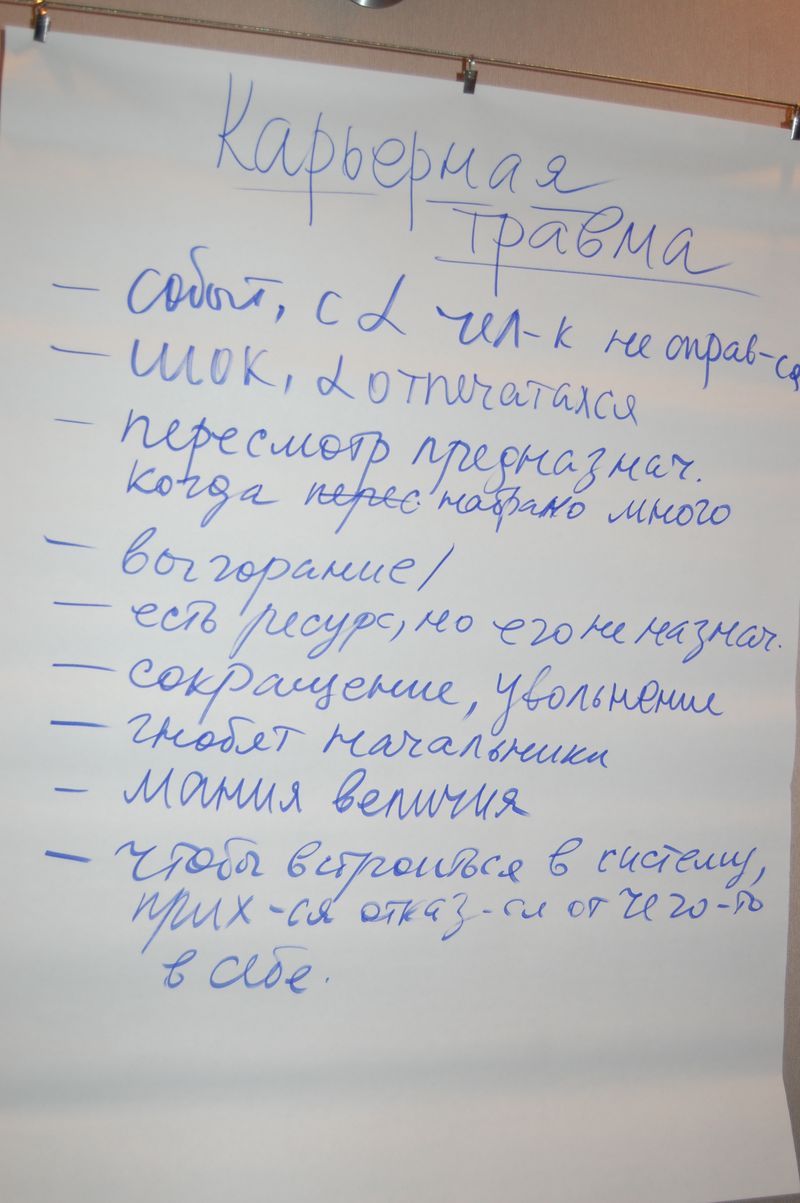 Карьерная
травма
— событ, с α чел-к не оправ-ся
— шок, α отпечатался
— пересмотр предназнач.
когда перес набрано много
— выгорание/
— есть ресурс, но его не назнач.
— сокращение, увольнение
— гнобят начальники
— мания величия
— чтобы встроиться в систему,
прих-ся отказ-ся от чего-то
в себе.